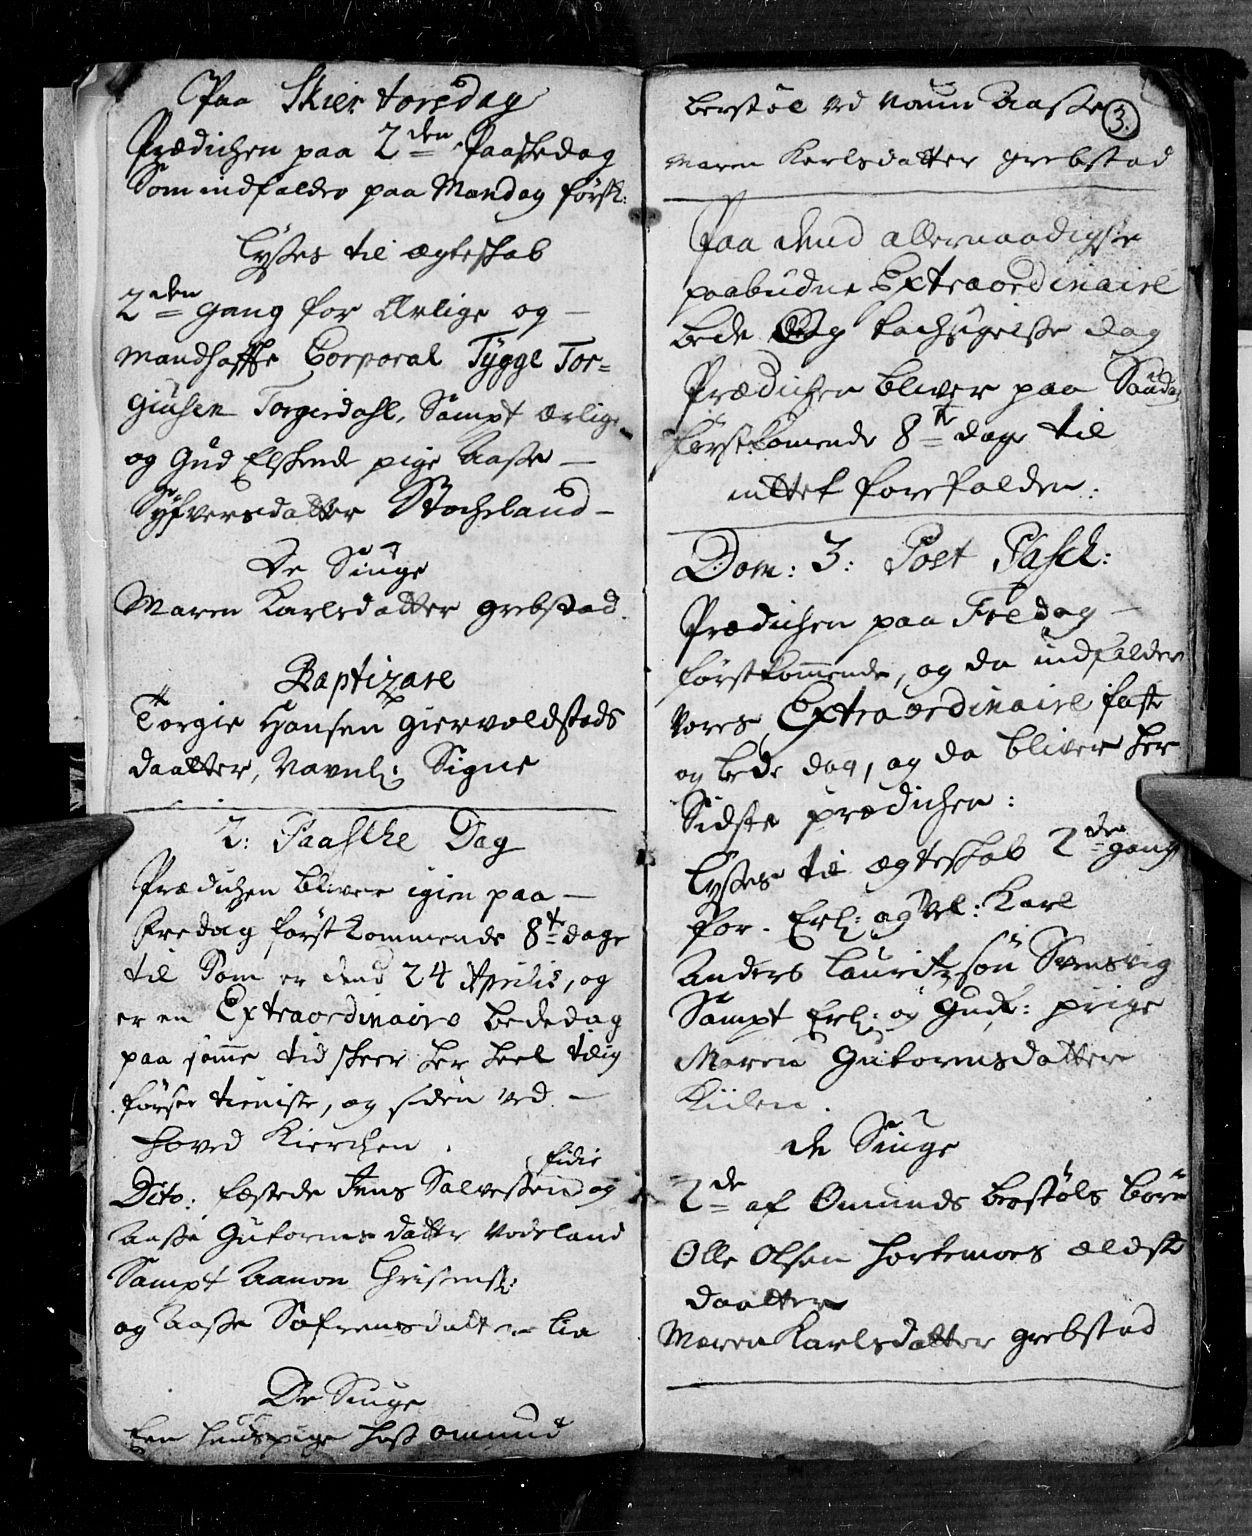 Paa Skier torsdag
Prædichen paa 2den Paaskedag
Som indfalder paa Mandag først:
Lyses til ægteskab
2den gang for Ærlige og
mandhaffte Corporal Tygge Tor=
giusen Torgersdahl, Sampt ærlige
og Gud Elskende pige Aasse
Syfversdatter Stocheland
De Siuge
Maren Karlsdatter grebstad
Baptizare
Torgie Hansen giervoldstads
daatter, Navnl: Signe
2: Paasche Dag
Prædichen bliver igien paa
Fredag først kommende 8te dage
til Som er dend 24 Aprilis, og
er en Extraordinaire bededag
paa samme tid skeer her heel tilig
første tieniste, og siden ved
hoved Kierchen.
fidie
Dito: fæstede Jens Salvessen og
Aasse Gutormsdatter Vodeland
Sampt Aanon Christensl:
og Aasse Sofrensdatter Lia
De Siuge
Een huuspige hoss omund
berstøl ved Navn Aasse
3.
Maren Karlsdatter grebstad
Paa dend allernaadigste
paabudne Extraordinaire
bede Og tachsigelse dag
Prædichen bliver paa Sønda
førstkomende 8te dage til
intet forefalden:
Dom: 3: Post Pasch:
Prædichen paa Fredag
førstkommende, og da indfalder
vores Extraordinaire faste
og bede dag, og da bliver her
Sidste prædichen:
Lyses til ægteskab 2de gang
for Erl: og Vel: Karl
Anders Lauritzsøn Svensvig
Sampt Erl: og Gudf: piige
Maren Gutormsdatter
Kiilen.
de Siuge
2de af Omunds berstøls børn
Olle Olsen hortemoes ældste
daatter
Maren Karlsdatter grebstad